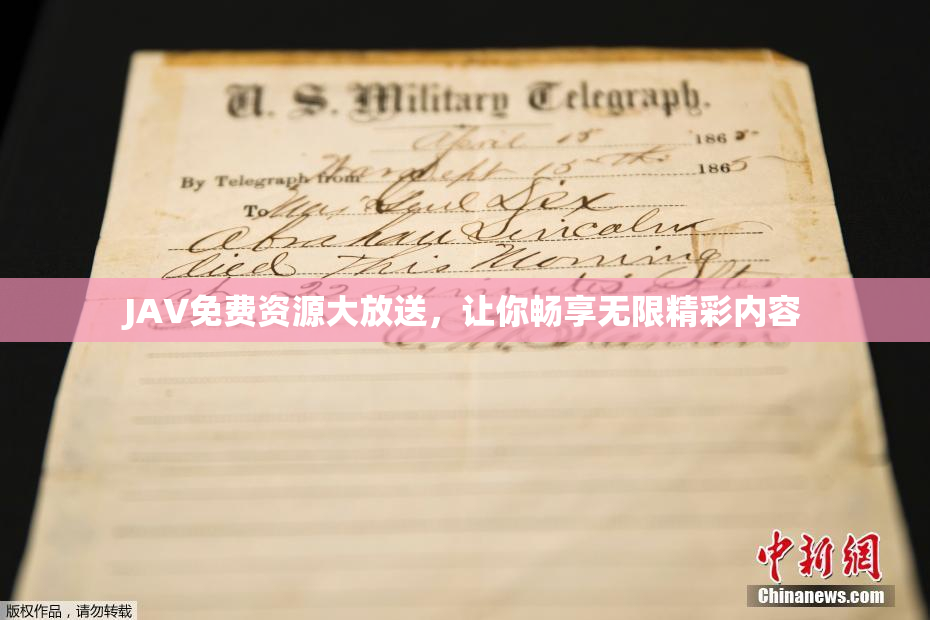 U. S. Military Telegraph.
April 15 1865
By Telegraph from War Dept 15th 1865
To Maj Genl Dix
Abraham Lincoln
died This Morning
at 22 minutes after
JAV免费资源大放送，让你畅享无限精彩内容
中新网
Chinanews.com
版权作品，请勿转载